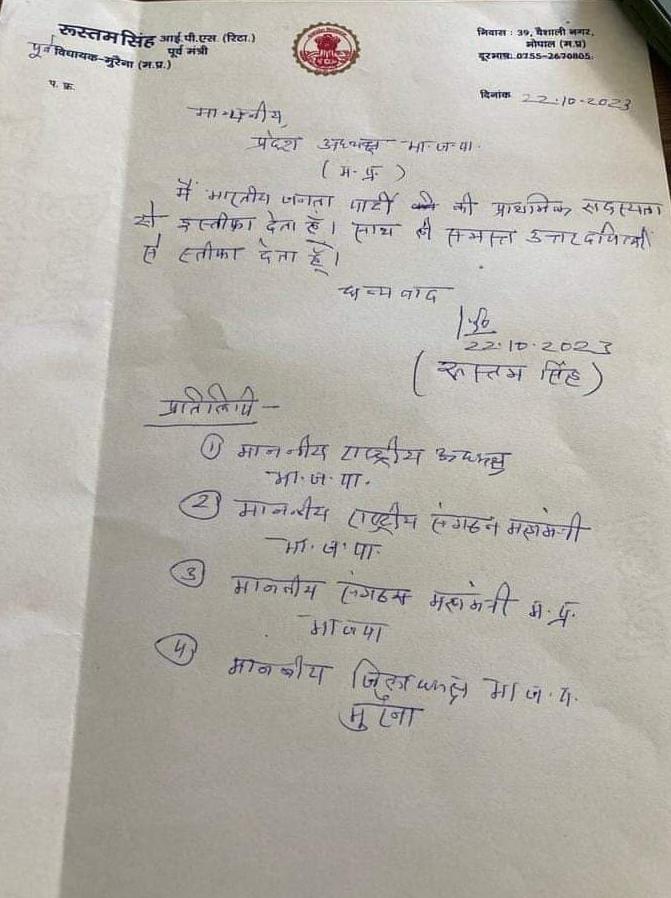 रूस्तमसिंह आई.पी.एस. (रिटा.)
पूर्व मंत्री
पूर्व विधायक-मुरैना (म.प्र.)
निवास : 39, वैशाली नगर,
भोपाल (म.प्र)
दूरभाष: 0755-2670805
प. क्र.
दिनांक 22.10.2023
माननीय,
प्रदेश अध्यक्ष भा.ज.पा.
(म.प्र.)
मैं भारतीय जनता पार्टी की प्राथमिक सदस्यता
से इस्तीफा देता हूं। साथ ही समस्त उत्तरदायित्वों
से स्तीफा देता हूँ।
धन्यवाद
22.10.2023
(रूस्तम सिंह)
प्रतिलिपि -
① माननीय राष्ट्रीय अध्यक्ष
भा.ज.पा.
② माननीय राष्ट्रीय संगठन महामंत्री
भा.ज.पा.
③ माननीय संगठन महामंत्री म.प्र.
भाजपा
④ माननीय जिलाध्यक्ष भा.ज.पा.
मुरैना